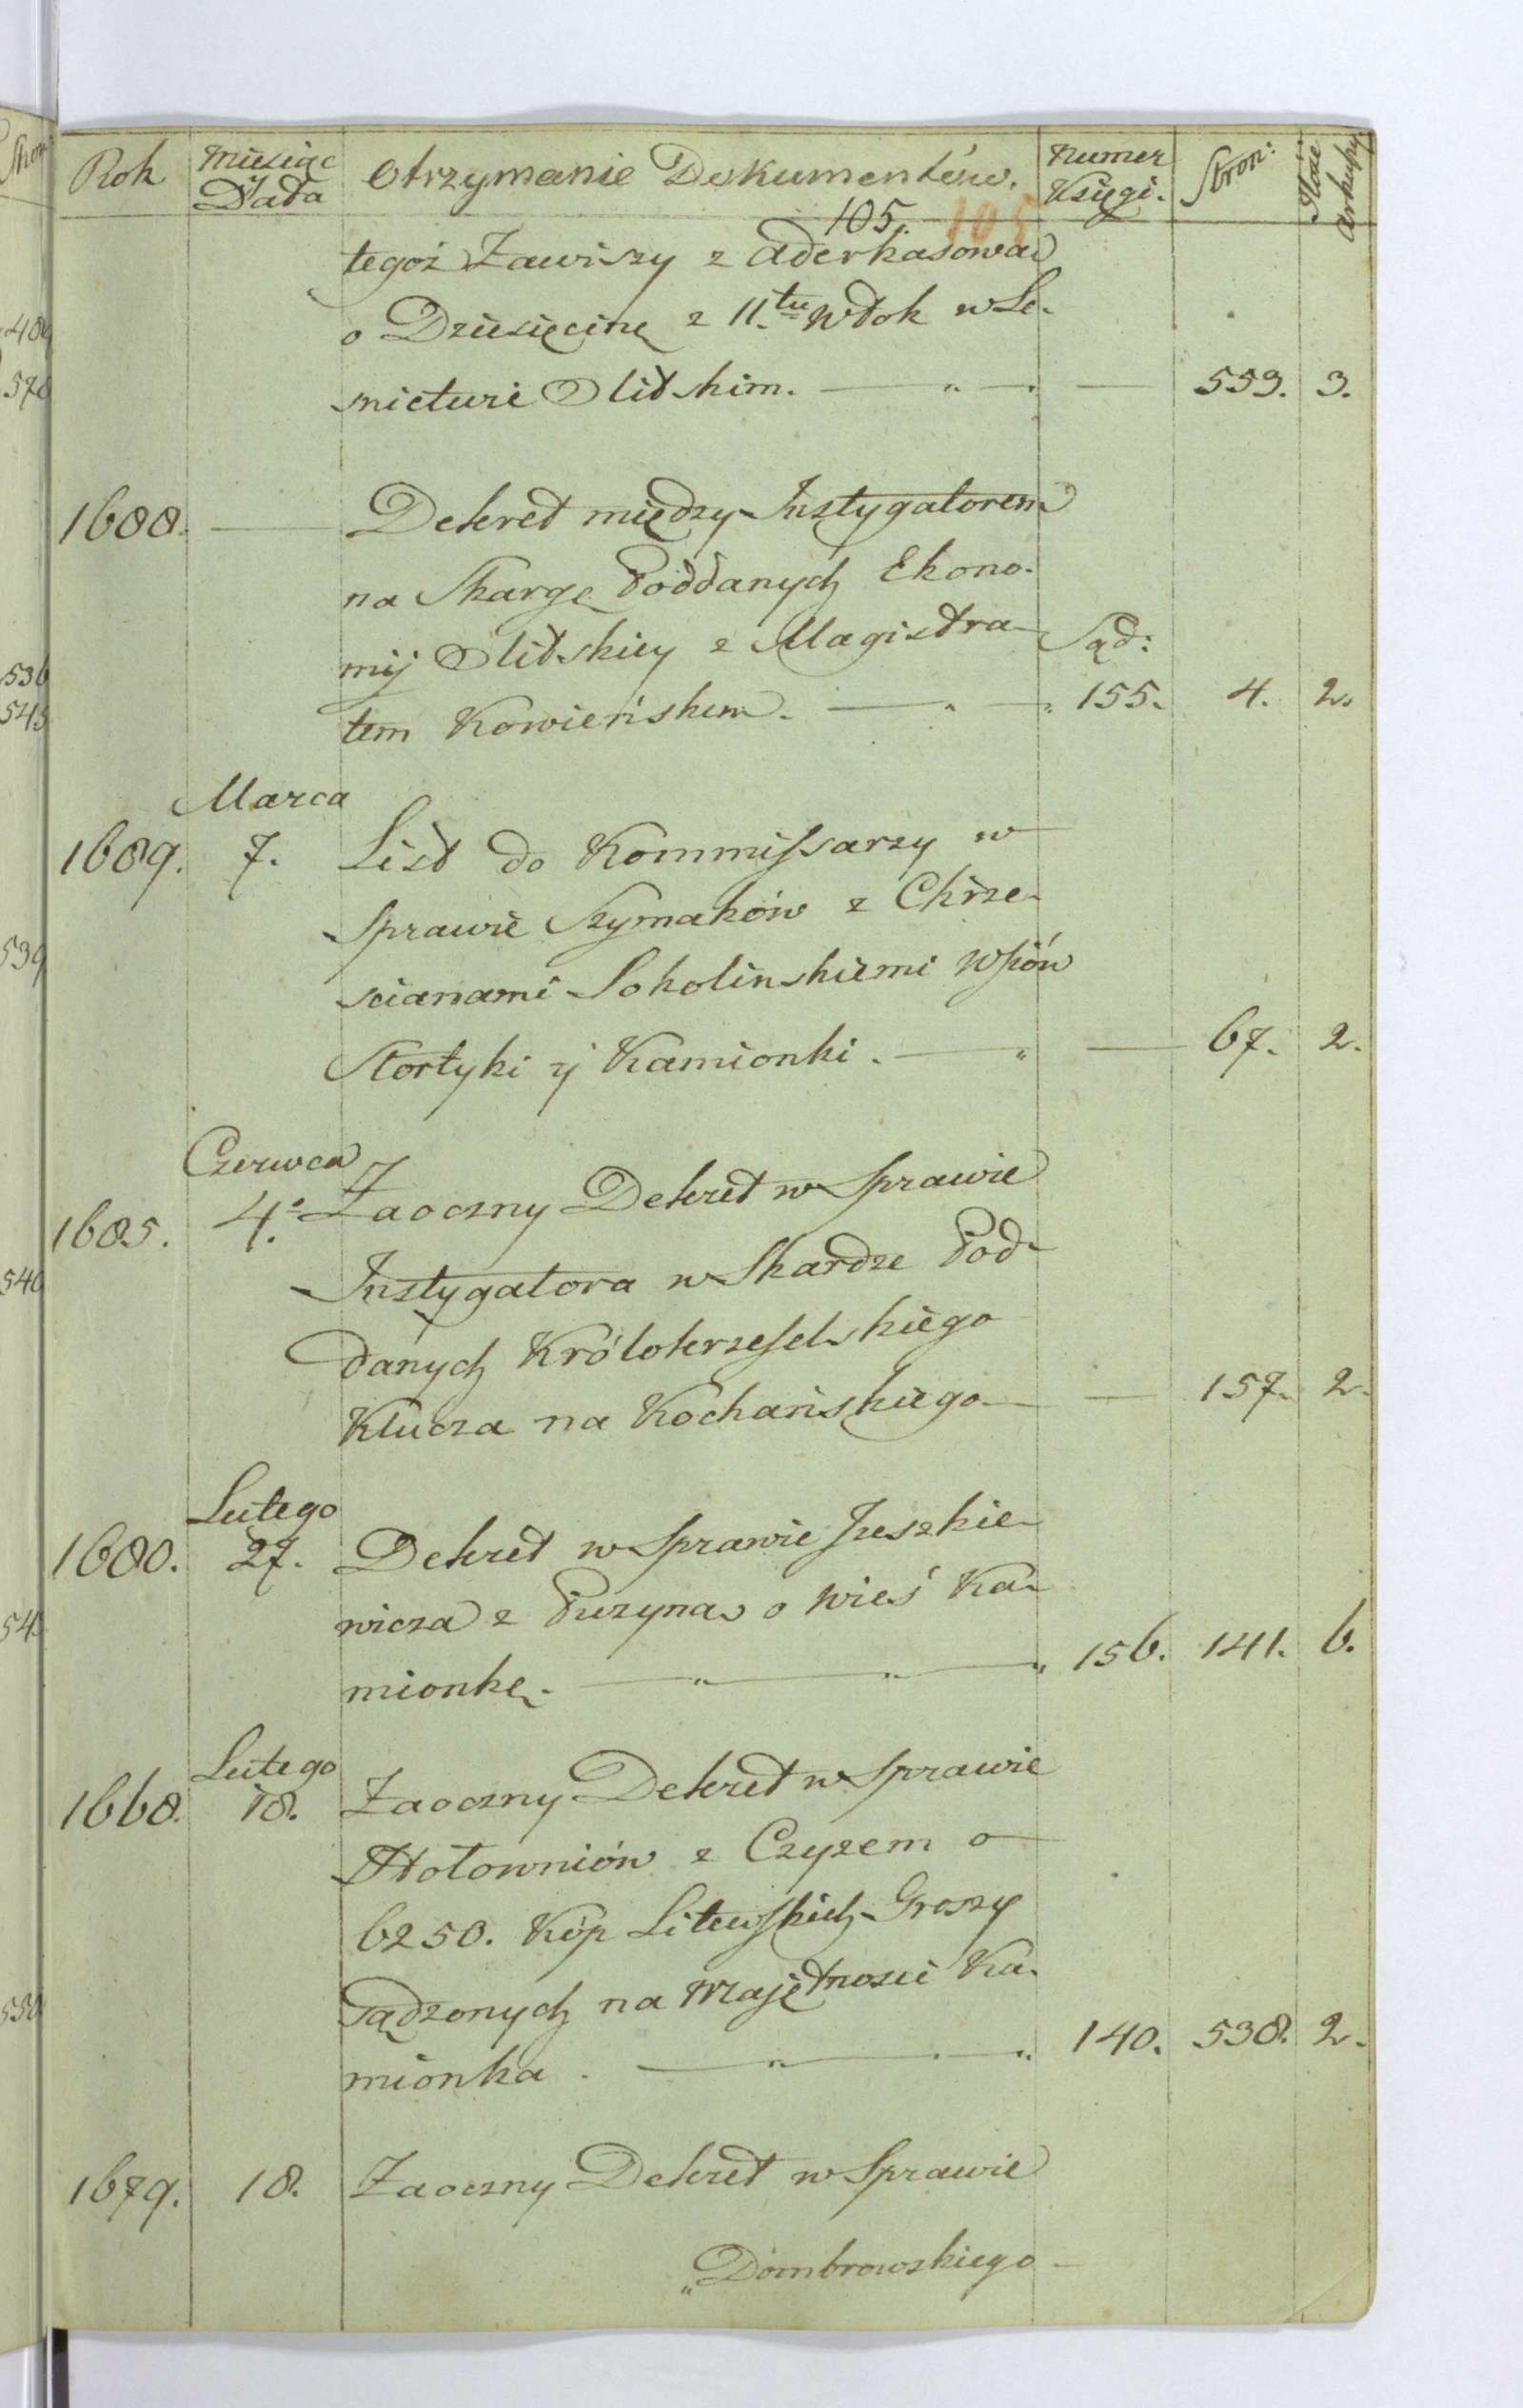 Rok Miesiąc Data Otrzymanie Dokumentów. Numer Księgi. Stron: Ilość Arkuszy
105. 105
tegoż Zawiszy z Aderkasową
o Dziesięcinę z 11.tu Włok w Le-
nictwie Olitskim. 559. 3.
1688. Dekret między Instygatorem
na Skargę Poddanych Ekono-
mij Olitskiey z Magistra-
Sąd:
tem Kowieńskim. 155. 4. 2.
Marca
1689. 7. List do Kommissarzy w
Sprawie Szymaków z Chrze-
scianami Sokolinskiemi Wsiów
Stortyki y Kamionki. 67. 2.
Czerwca
1685. 4. Zaoczny Dekret w Sprawie
Instygatora w Skardze Pod-
danych Królokrzeselskiego
Klucza na Kochańskiego 157. 2.
Lutego
1680. 27. Dekret w Sprawie Juszkie-
wicza z Puzyną o wieś Ka-
mionkę. 156. 141. 6.
Lutego
1668. 18. Zaoczny Dekret w Sprawie
Hołowniów z Czyzem o
6250. Kóp Litewskich Groszy
Sądzonych na Majętnosci Ka-
mionka. 140. 538. 2.
1679. 18. Zaoczny Dekret w Sprawie
Dombrowskiego